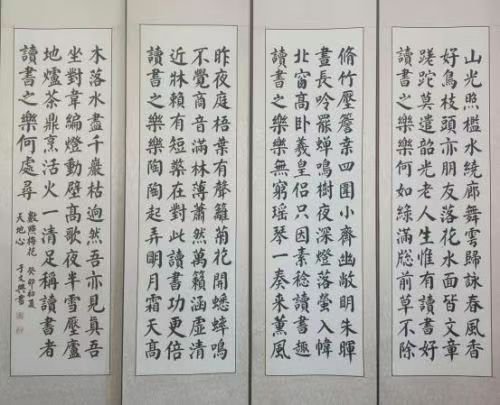 山光照檻水繞廊舞雩歸詠春風香
好鳥枝頭亦朋友落花水面皆文章
蹉跎莫遣韶光老人生惟有讀書好
讀書之樂樂何如綠滿窗前草不除
脩竹壓簷桑四圍小齋幽敞明朱暉
晝長吟罷蟬鳴樹夜深燈落螢入幃
北窗高卧羲皇侶只因素稔讀書趣
讀書之樂樂無窮瑤琴一奏來薰風
昨夜庭梧葉有聲籬菊花開蟋蟀鳴
不覺商音滿林薄蕭然萬籟涵虛清
近牀賴有短檠在對此讀書功更倍
讀書之樂樂陶陶起弄明月霜天高
木落水盡千巖枯迥然吾亦見真吾
坐對韋編燈動壁高歌夜半雪壓廬
地爐茶鼎烹活火一清足稱讀書者
讀書之樂何處尋
數點梅花 癸卯初夏
天地心 于文興書